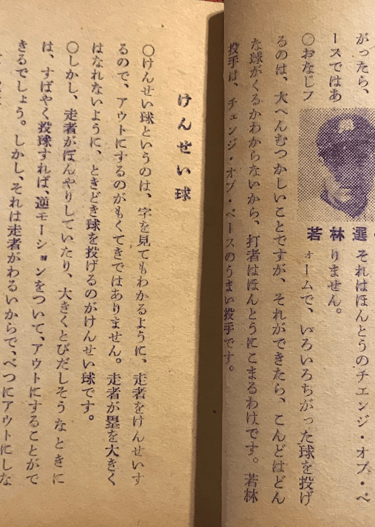 がったら、それはほんとうのチェンジ・オブ・ペ
ースではありません。
○おなじフォームで、いろいろちがった球を投げ
るのは、大へんむつかしいことですが、それができたら、こんどはどん
な球がくるかわからないから、打者はほんとうにこまるわけです。若林
投手は、チェンジ・オブ・ペースのうまい投手です。
若林選
けんせい球
○けんせい球というのは、字を見てもわかるように、走者をけんせいす
るので、アウトにするのがもくてきではありません。走者が塁を大きく
はなれないように、ときどき球を投げるのがけんせい球です。
○しかし、走者がぼんやりしていたり、大きくとびだしそうなときに
は、すばやく投球すれば、逆モーションをついて、アウトにすることがで
きるでしょう。しかし、それは走者がわるいからで、べつにアウトにしな